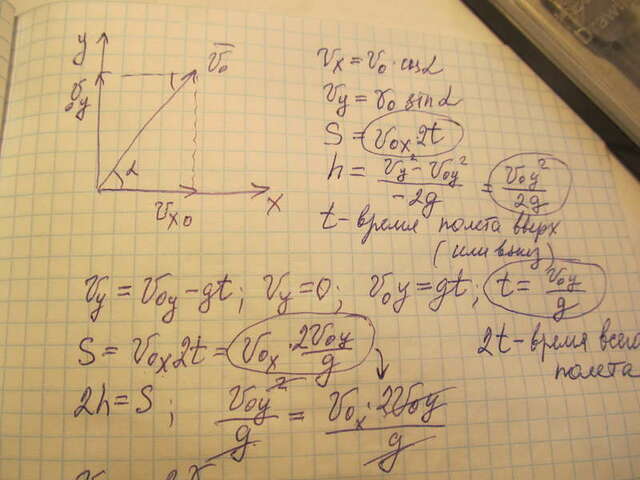 y
v̄₀
v₀y
α
x
vₓ₀
vₓ = v₀·cosα
v_y = v₀ sinα
S = v₀ₓ 2t
h = (v_y² - v₀y²)/(-2g) = v₀y²/2g
t - время полета вверх
(или вниз)
v_y = v₀y - gt; v_y = 0; v₀y = gt; t = v₀y/g
S = v₀ₓ 2t = v₀ₓ · 2v₀y/g
2t - время всего
полета
2h = S; v₀y²/g = v₀ₓ · 2v₀y/g